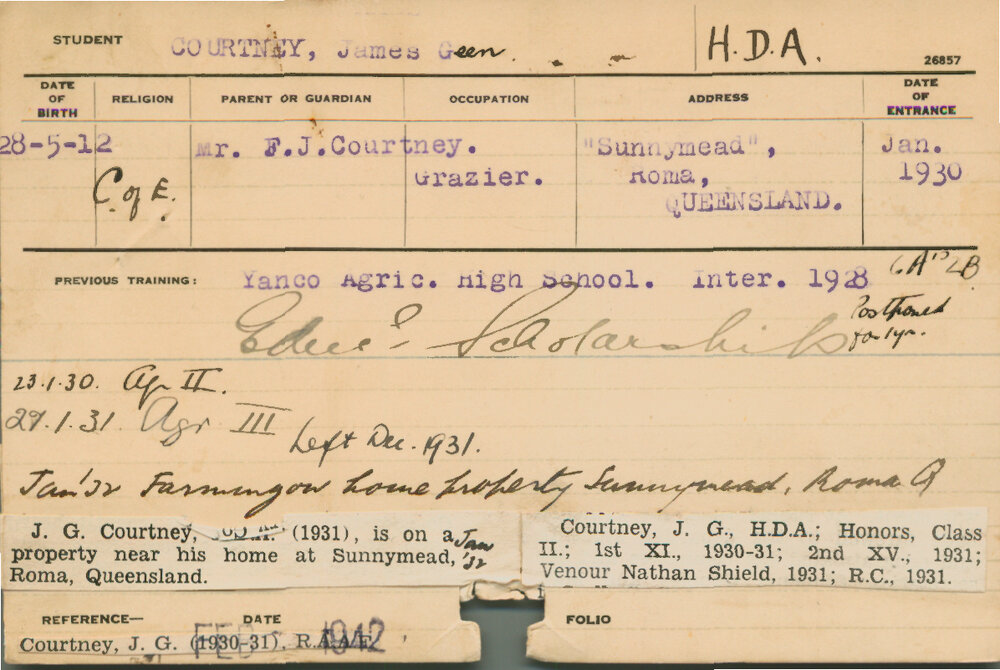 STUDENT COURTNEY, James Geen. H.D.A.
26857
DATE OF BIRTH RELIGION PARENT OR GUARDIAN OCCUPATION ADDRESS DATE OF ENTRANCE
28-5-12 Mr. F.J.Courtney. "Sunnymead", Jan.
C. of E. Grazier. Roma, 1930
QUEENSLAND.
PREVIOUS TRAINING: Yanco Agric. High School. Inter. 1928 6A's 2B
Scholarship Postponed for 1 yr.
23.1.30. Agr II.
29.1.31. Agr III
Left Dec. 1931.
Jan '32 Farming on home property Sunnymead, Roma Q
J. G. Courtney, (1931), is on a
property near his home at Sunnymead,
Roma, Queensland.
Jan '32
Courtney, J. G., H.D.A.; Honors, Class
II.; 1st XI., 1930-31; 2nd XV., 1931;
Venour Nathan Shield, 1931; R.C., 1931.
REFERENCE— DATE FOLIO
Courtney, J. G. (1930-31). R.A.A.F.
FEB 1942